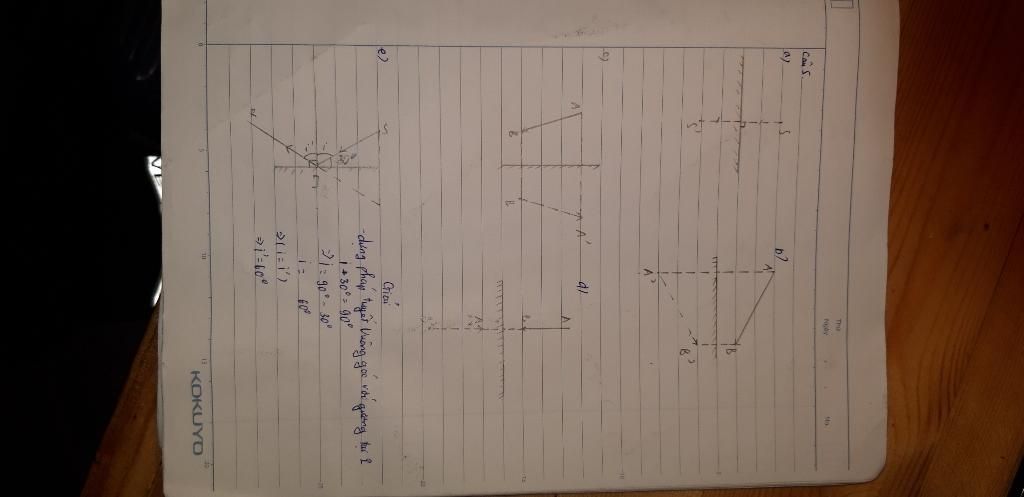 Thứ
Ngày
No.
Câu 5.
a)
S
S'
b)
A
B
A'
B'
c)
A
A'
B
B'
d)
A
B
B'
A'
e)
S
30°
i
i'
I
R
Giải
-dựng pháp tuyến vuông góc với gương tại I
i + 30° = 90°
=> i = 90° - 30°
i = 60°
=> i = i'
=> i' = 60°
KOKUYO